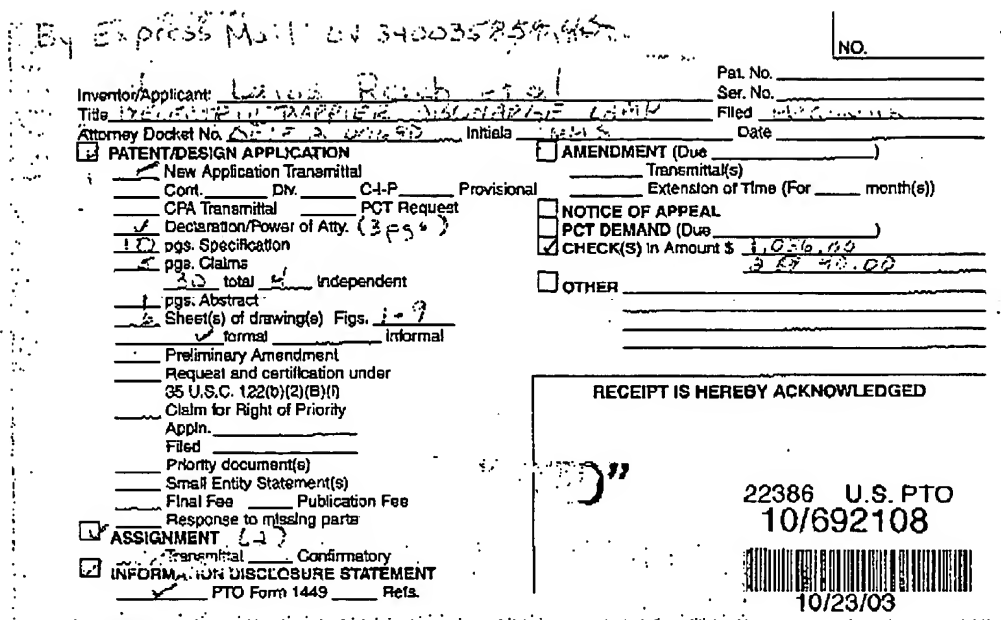 By Express Mail
NO.
Pat. No.
Inventor/Applicant: Reich et al
Ser. No.
Title DISCHARGE LAMP
Filed
Attorney Docket No. Initials Date
PATENT/DESIGN APPLICATION
New Application Transmittal
Cont. Div. C-I-P Provisional
CPA Transmittal PCT Request
Declaration/Power of Atty. (3 pgs)
10 pgs. Specification
5 pgs. Claims
30 total 4 Independent
1 pgs. Abstract
6 Sheet(s) of drawing(s) Figs. 1-9
formal Informal
Preliminary Amendment
Request and certification under
35 U.S.C. 122(b)(2)(B)(i)
Claim for Right of Priority
Appln.
Filed
Priority document(s)
Small Entity Statement(s)
Final Fee Publication Fee
Response to missing parts
ASSIGNMENT
Transmittal Confirmatory
INFORMATION DISCLOSURE STATEMENT
PTO Form 1449 Refs.
AMENDMENT (Due )
Transmittal(s)
Extension of Time (For month(s))
NOTICE OF APPEAL
PCT DEMAND (Due )
CHECK(S) in Amount $ 1,056.00
OTHER
RECEIPT IS HEREBY ACKNOWLEDGED
22386 U.S. PTO
10/692108
10/23/03